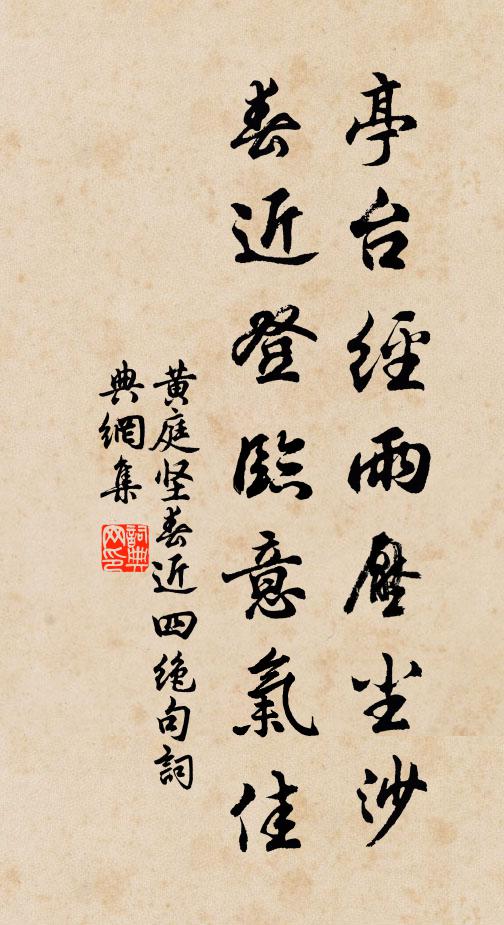 亭台經雨壓尘沙
春近登臨意氣佳
黄庭坚春近四绝句詞
典網集
詞典网印